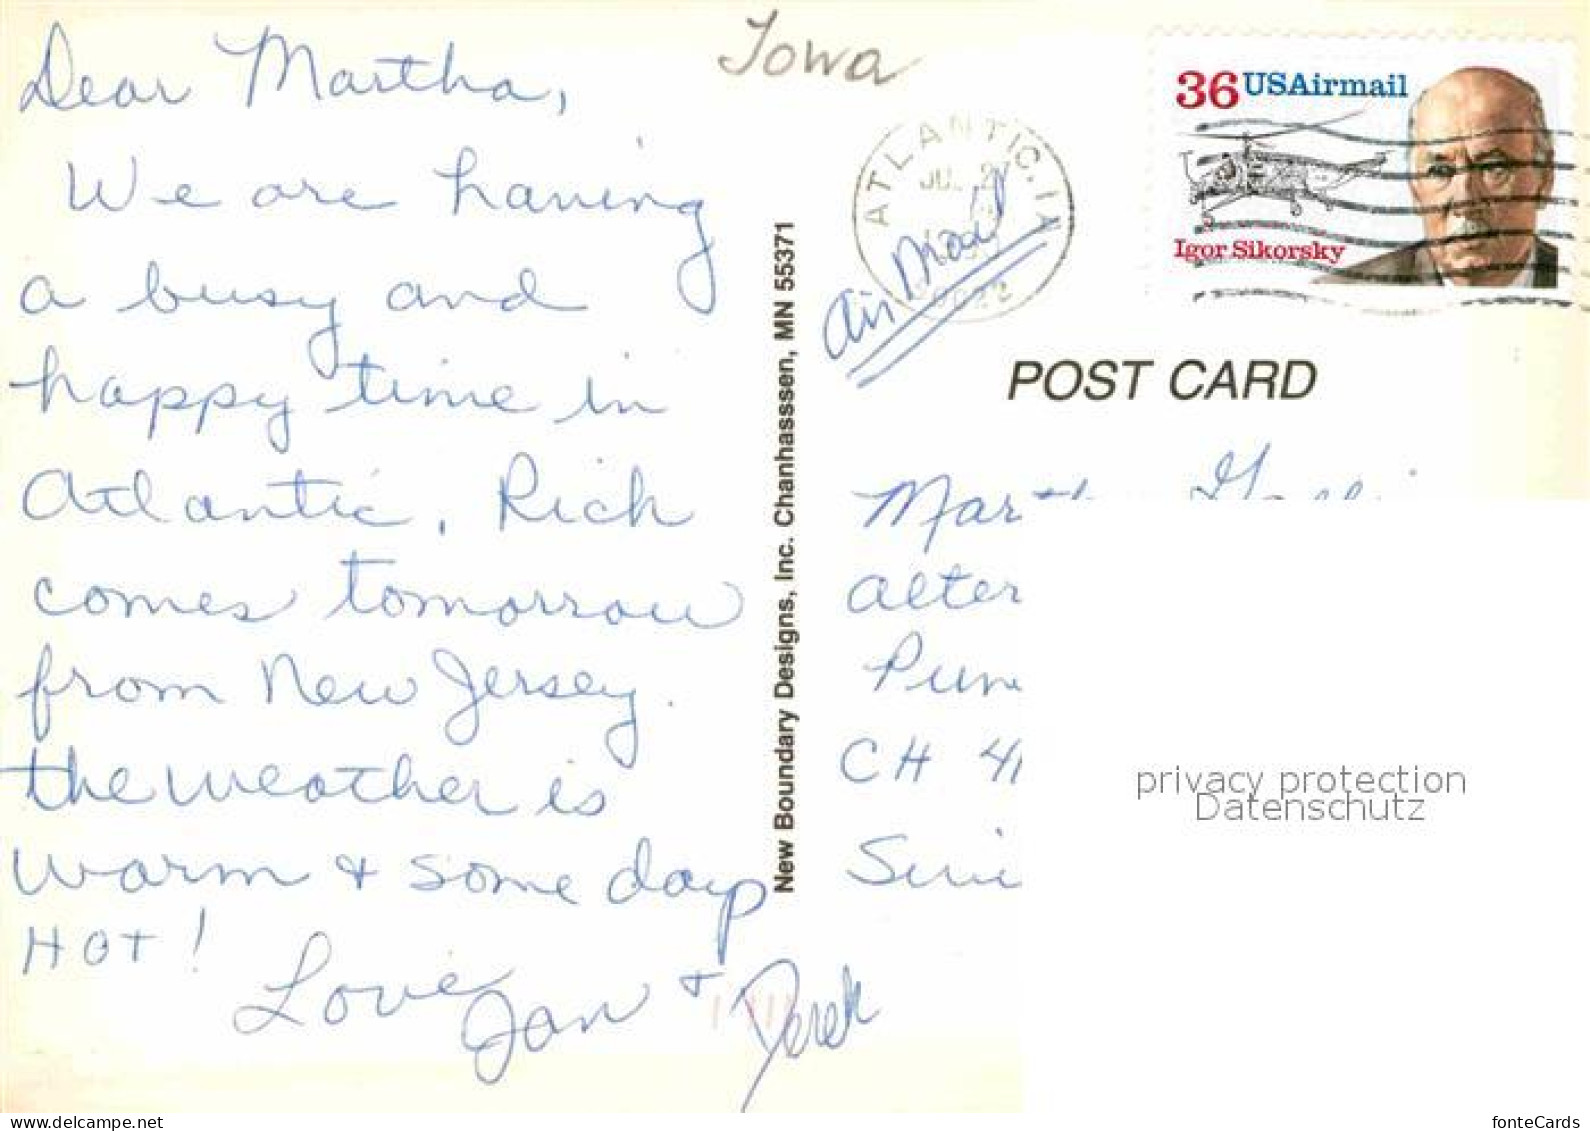 Dear Martha,
We are having
a busy and
happy time in
Atlantic. Rich
comes tomorrow
from New Jersey.
the weather is
warm & some days
HOT!
Love
Jan & Derek
New Boundary Designs, Inc. Chanhasssen, MN 55371
Iowa
ATLANTIC, IA
Air Mail
36 USAirmail
Igor Sikorsky
POST CARD
CH 41
privacy protection
Datenschutz
www.delcampe.net
fonteCards